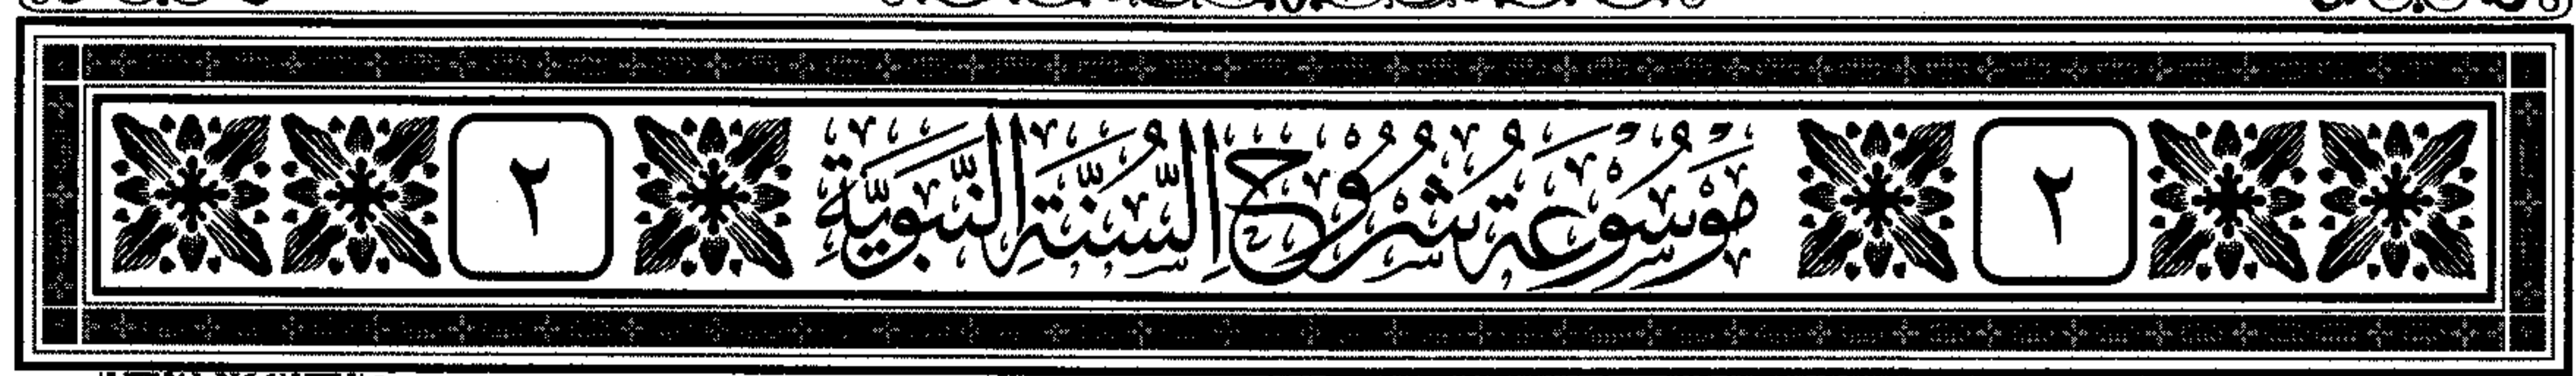 ٢ مَوْسُوْعَةُ شُرُوْحِ السُّنَّةِ النَّبَوِيَّةِ ٢